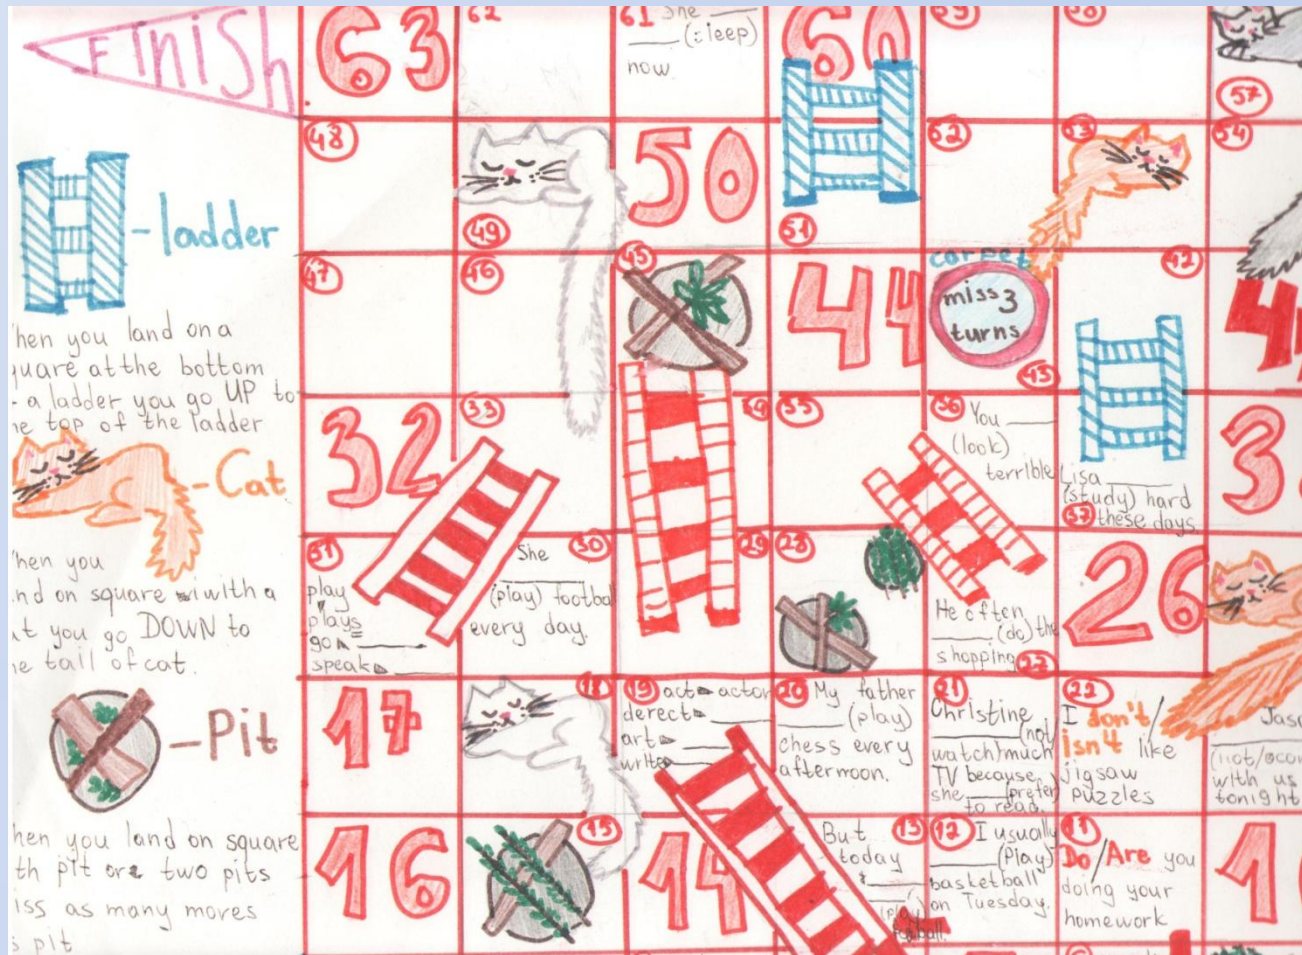 FINISH
63
62
61 She ___
___ (sleep)
now.
60
59
58
57
48
49
50
51
52
53
54
- ladder
hen you land on a
quare at the bottom
a ladder you go UP to
he top of the ladder
- Cat
hen you
nd on square with a
at you go DOWN to
he tail of cat.
- Pit
hen you land on square
th pit or two pits
iss as many moves
s pit
47
46
45
44
carpet
miss 3
turns
43
42
4
32
33
34
35
36 You ___
(look)
terrible
Lisa ___
(study) hard
37 these days.
3
31
play
plays
go ___
speak ___
30
She
___
(play) footbal
every day.
29
28
He often
___ (do) the
shopping 22
26
17
18
19 act actor
derect ___
art ___
write ___
20 My father
___ (play)
chess every
afternoon.
21
Christine
___ (not
watch) much
TV because
she ___ (prefer)
to read.
22
I don't/
isn't like
jigsaw
puzzles
Jas
(not/
with us
tonight
16
15
14
13
But
today
___
(play
football.
12 I usually
___ (play)
basketball
on Tuesday.
11
Do/Are you
doing your
homework
1